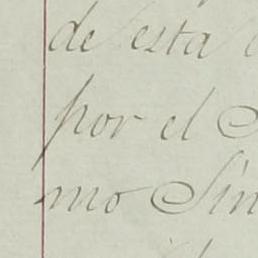 de esta
por el
mo Sin